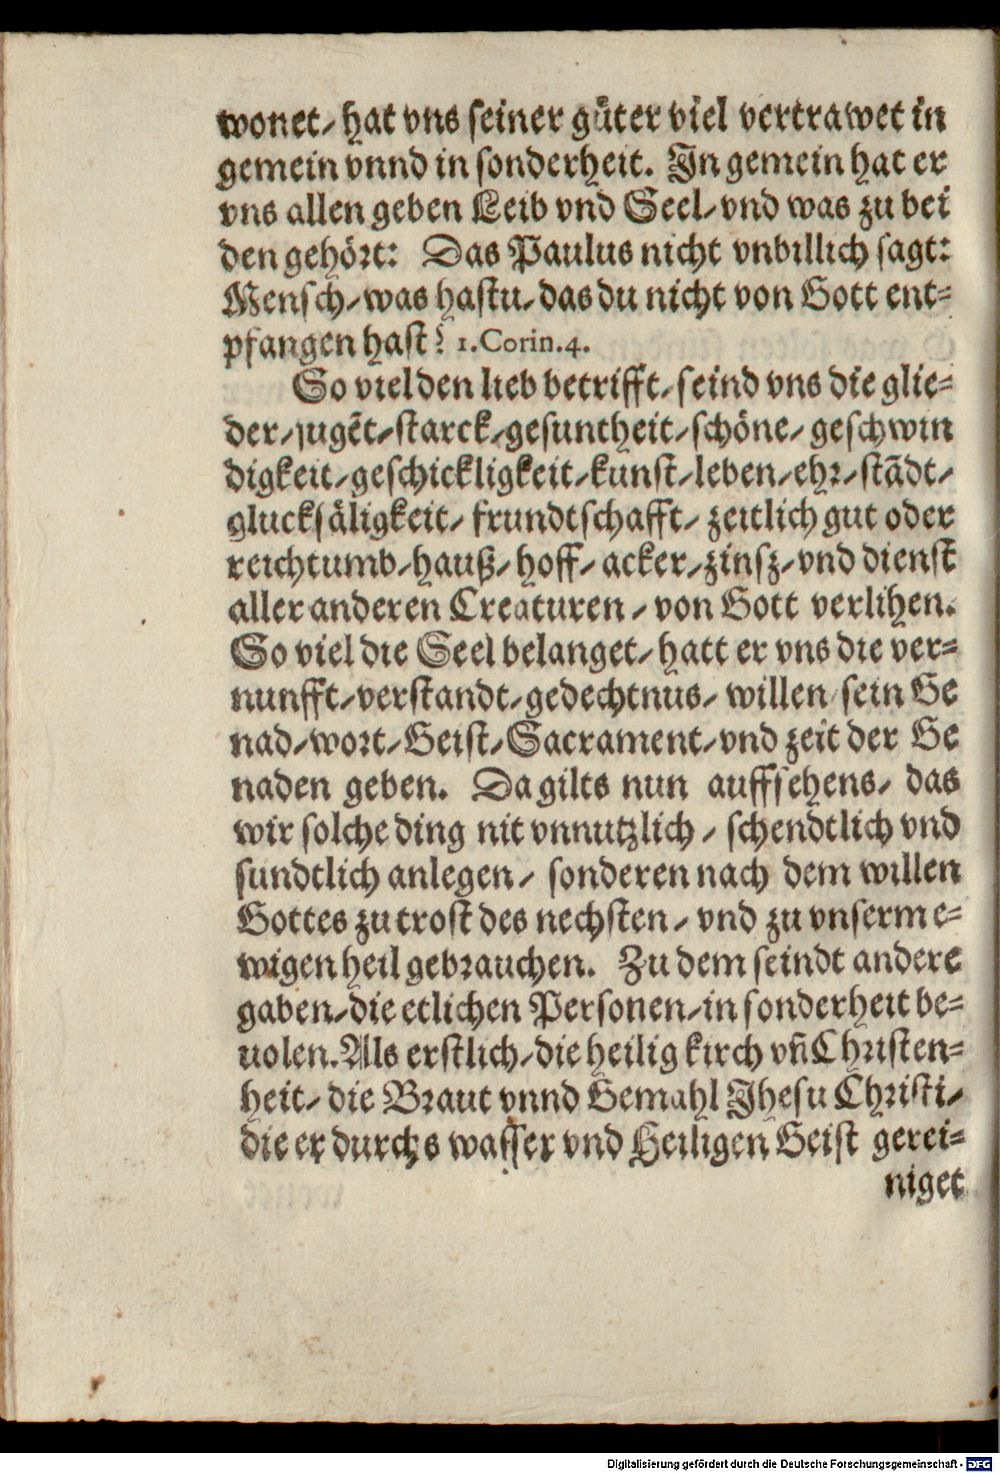 wonet/ hat vns seiner gůter viel vertrawet in
gemein vnnd in sonderheit. In gemein hat er
vns allen geben Leib vnd Seel/ vnd was zu bei
den gehört: Das Paulus nicht vnbillich sagt:
Mensch/ was hastu/ das du nicht von Gott ent=
pfangen hast? 1. Corin. 4.
So viel den lieb betrifft/ seind vns die glie=
der/ jugēt/ starck/ gesuntheit/ schöne/ geschwin
digkeit/ geschickligkeit/ kunst/ leben/ ehr/ stādt/
glucksäligkeit/ frundtschafft/ zeitlich gut oder
reichtumb/ hauß/ hoff/ acker/ zinsz/ vnd dienst
aller anderen Creaturen/ von Gott verlihen.
So viel die Seel belanget/ hatt er vns die ver=
nunfft/ verstandt/ gedechtnus/ willen/ sein Ge
nad/ wort/ Geist/ Sacrament/ vnd zeit der Ge
naden geben. Da gilts nun auffsehens/ das
wir solche ding nit vnnutzlich/ schendtlich vnd
sundtlich anlegen/ sonderen nach dem willen
Gottes zu trost des nechsten/ vnd zu vnserm e=
wigen heil gebrauchen. Zu dem seindt andere
gaben/ die etlichen Personen/ in sonderheit be=
uolen. Als erstlich/ die heilig kirch vñ Christen=
heit/ die Braut vnnd Gemahl Jhesu Christi/
die er durchs wasser vnd Heiligen Geist gerei=
niget
Digitalisierung gefördert durch die Deutsche Forschungsgemeinschaft - DFG